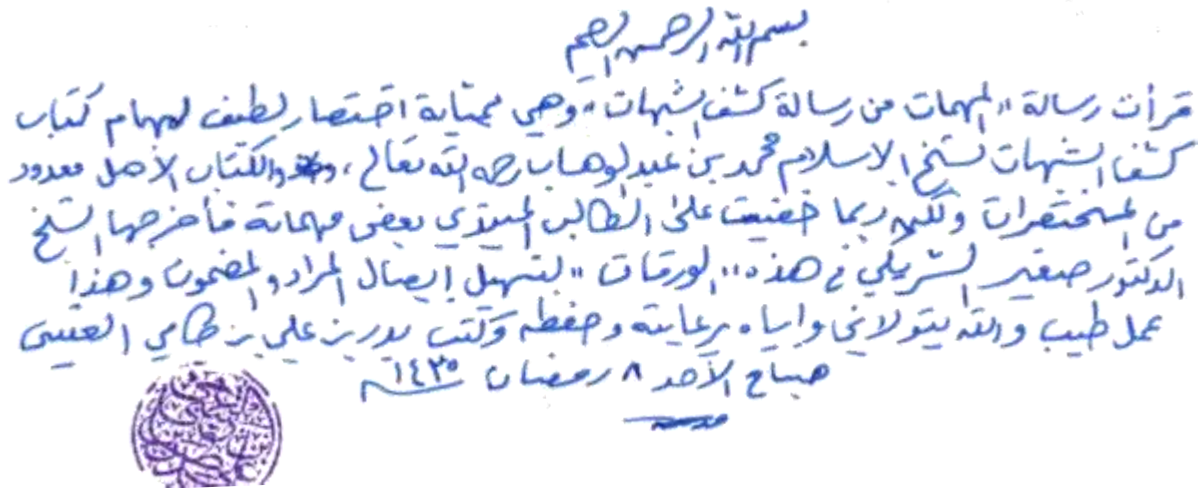 بسم الله الرحمن الرحيم
قرأت رسالة "المهمات من رسالة كشف الشبهات" وهي بمثابة اختصار لطيف لمهام كتاب
كشف الشبهات لشيخ الإسلام محمد بن عبد الوهاب رحمه الله تعالى، والكتاب الأصل معدود
من المختصرات ولكن ربما خفيت على الطالب المبتدي بعض مهماته فأخرجها الشيخ
الدكتور صغير الشريكي في هذه "الورقات" لتسهيل إيصال المراد والمضمون وهذا
عمل طيب والله يتولاني وإياه برعايته وحفظه وكتب بدر بن علي بن طامي العتيبي
صباح الأحد ٨ رمضان ١٤٣٥